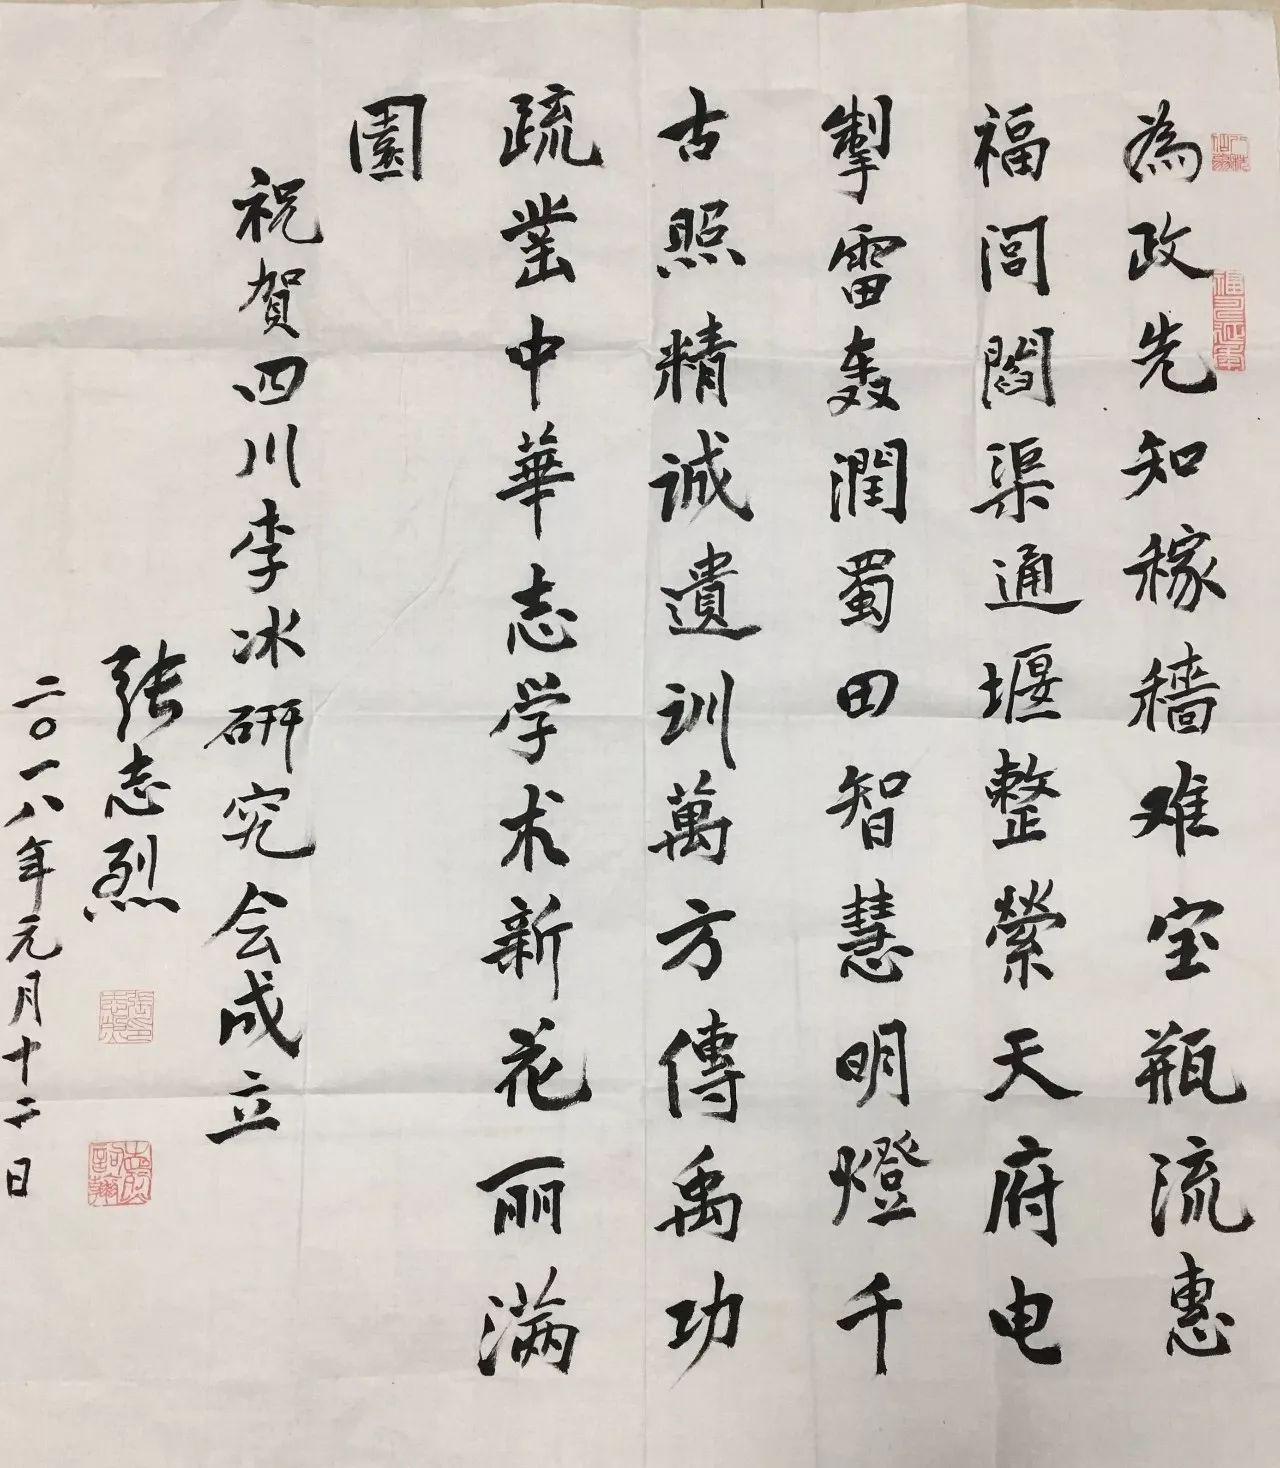 為政先知稼穡难宝瓶流惠
福闾閻渠通堰整萦天府电
掣雷轰潤蜀田智慧明燈千
古照精诚遺训萬方傳禹功
疏凿中華志学术新花丽满
園
祝贺四川李冰研究会成立
张志烈
二〇一八年元月十二日